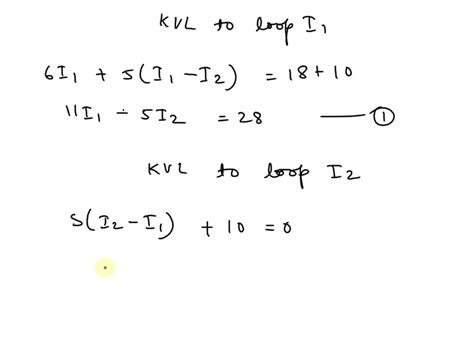 KVL to loop I₁
6I₁ + 5(I₁ - I₂) = 18 + 10
11I₁ - 5I₂ = 28 ——— ①
KVL to loop I₂
5(I₂ - I₁) + 10 = 0